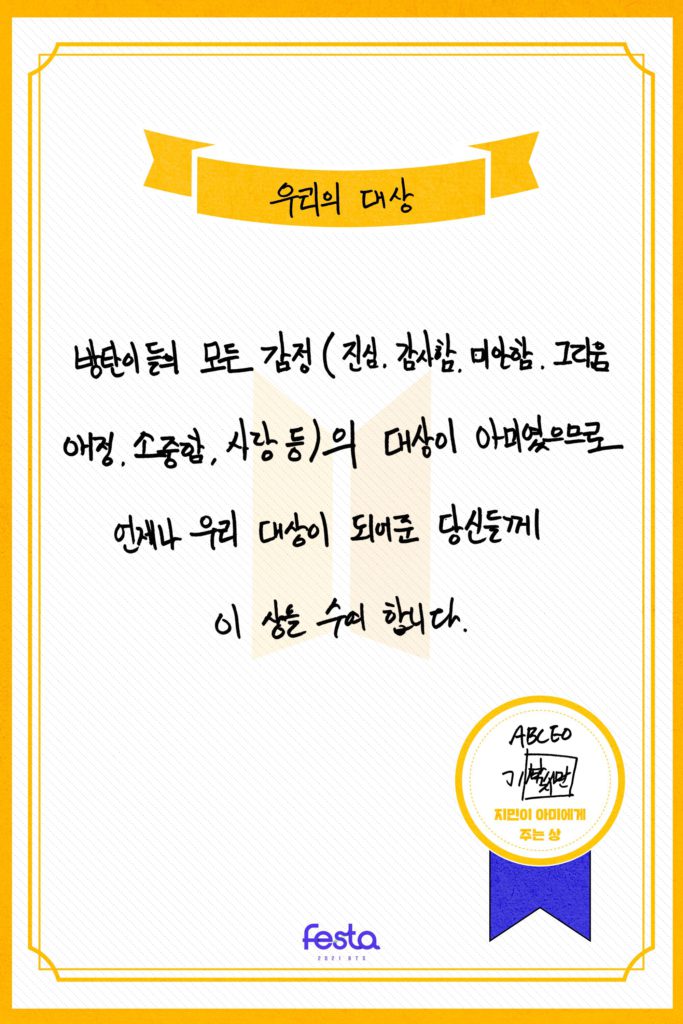 우리의 대상
방탄이들의 모든 감정 (진심, 감사함, 미안함, 그리움
애정, 소중함, 사랑 등)의 대상이 아미였으므로
언제나 우리 대상이 되어준 당신들께
이 상을 수여 합니다.
ABCEO
지민이 아미에게
주는 상
festa
2021 BTS